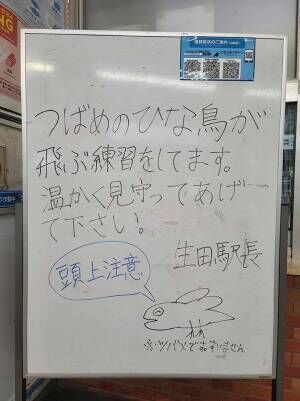 つばめのひな鳥が
飛ぶ練習をしてます。
温かく見守ってあげ
て下さい。
生田駅長
頭上注意
※ツバメです すいません